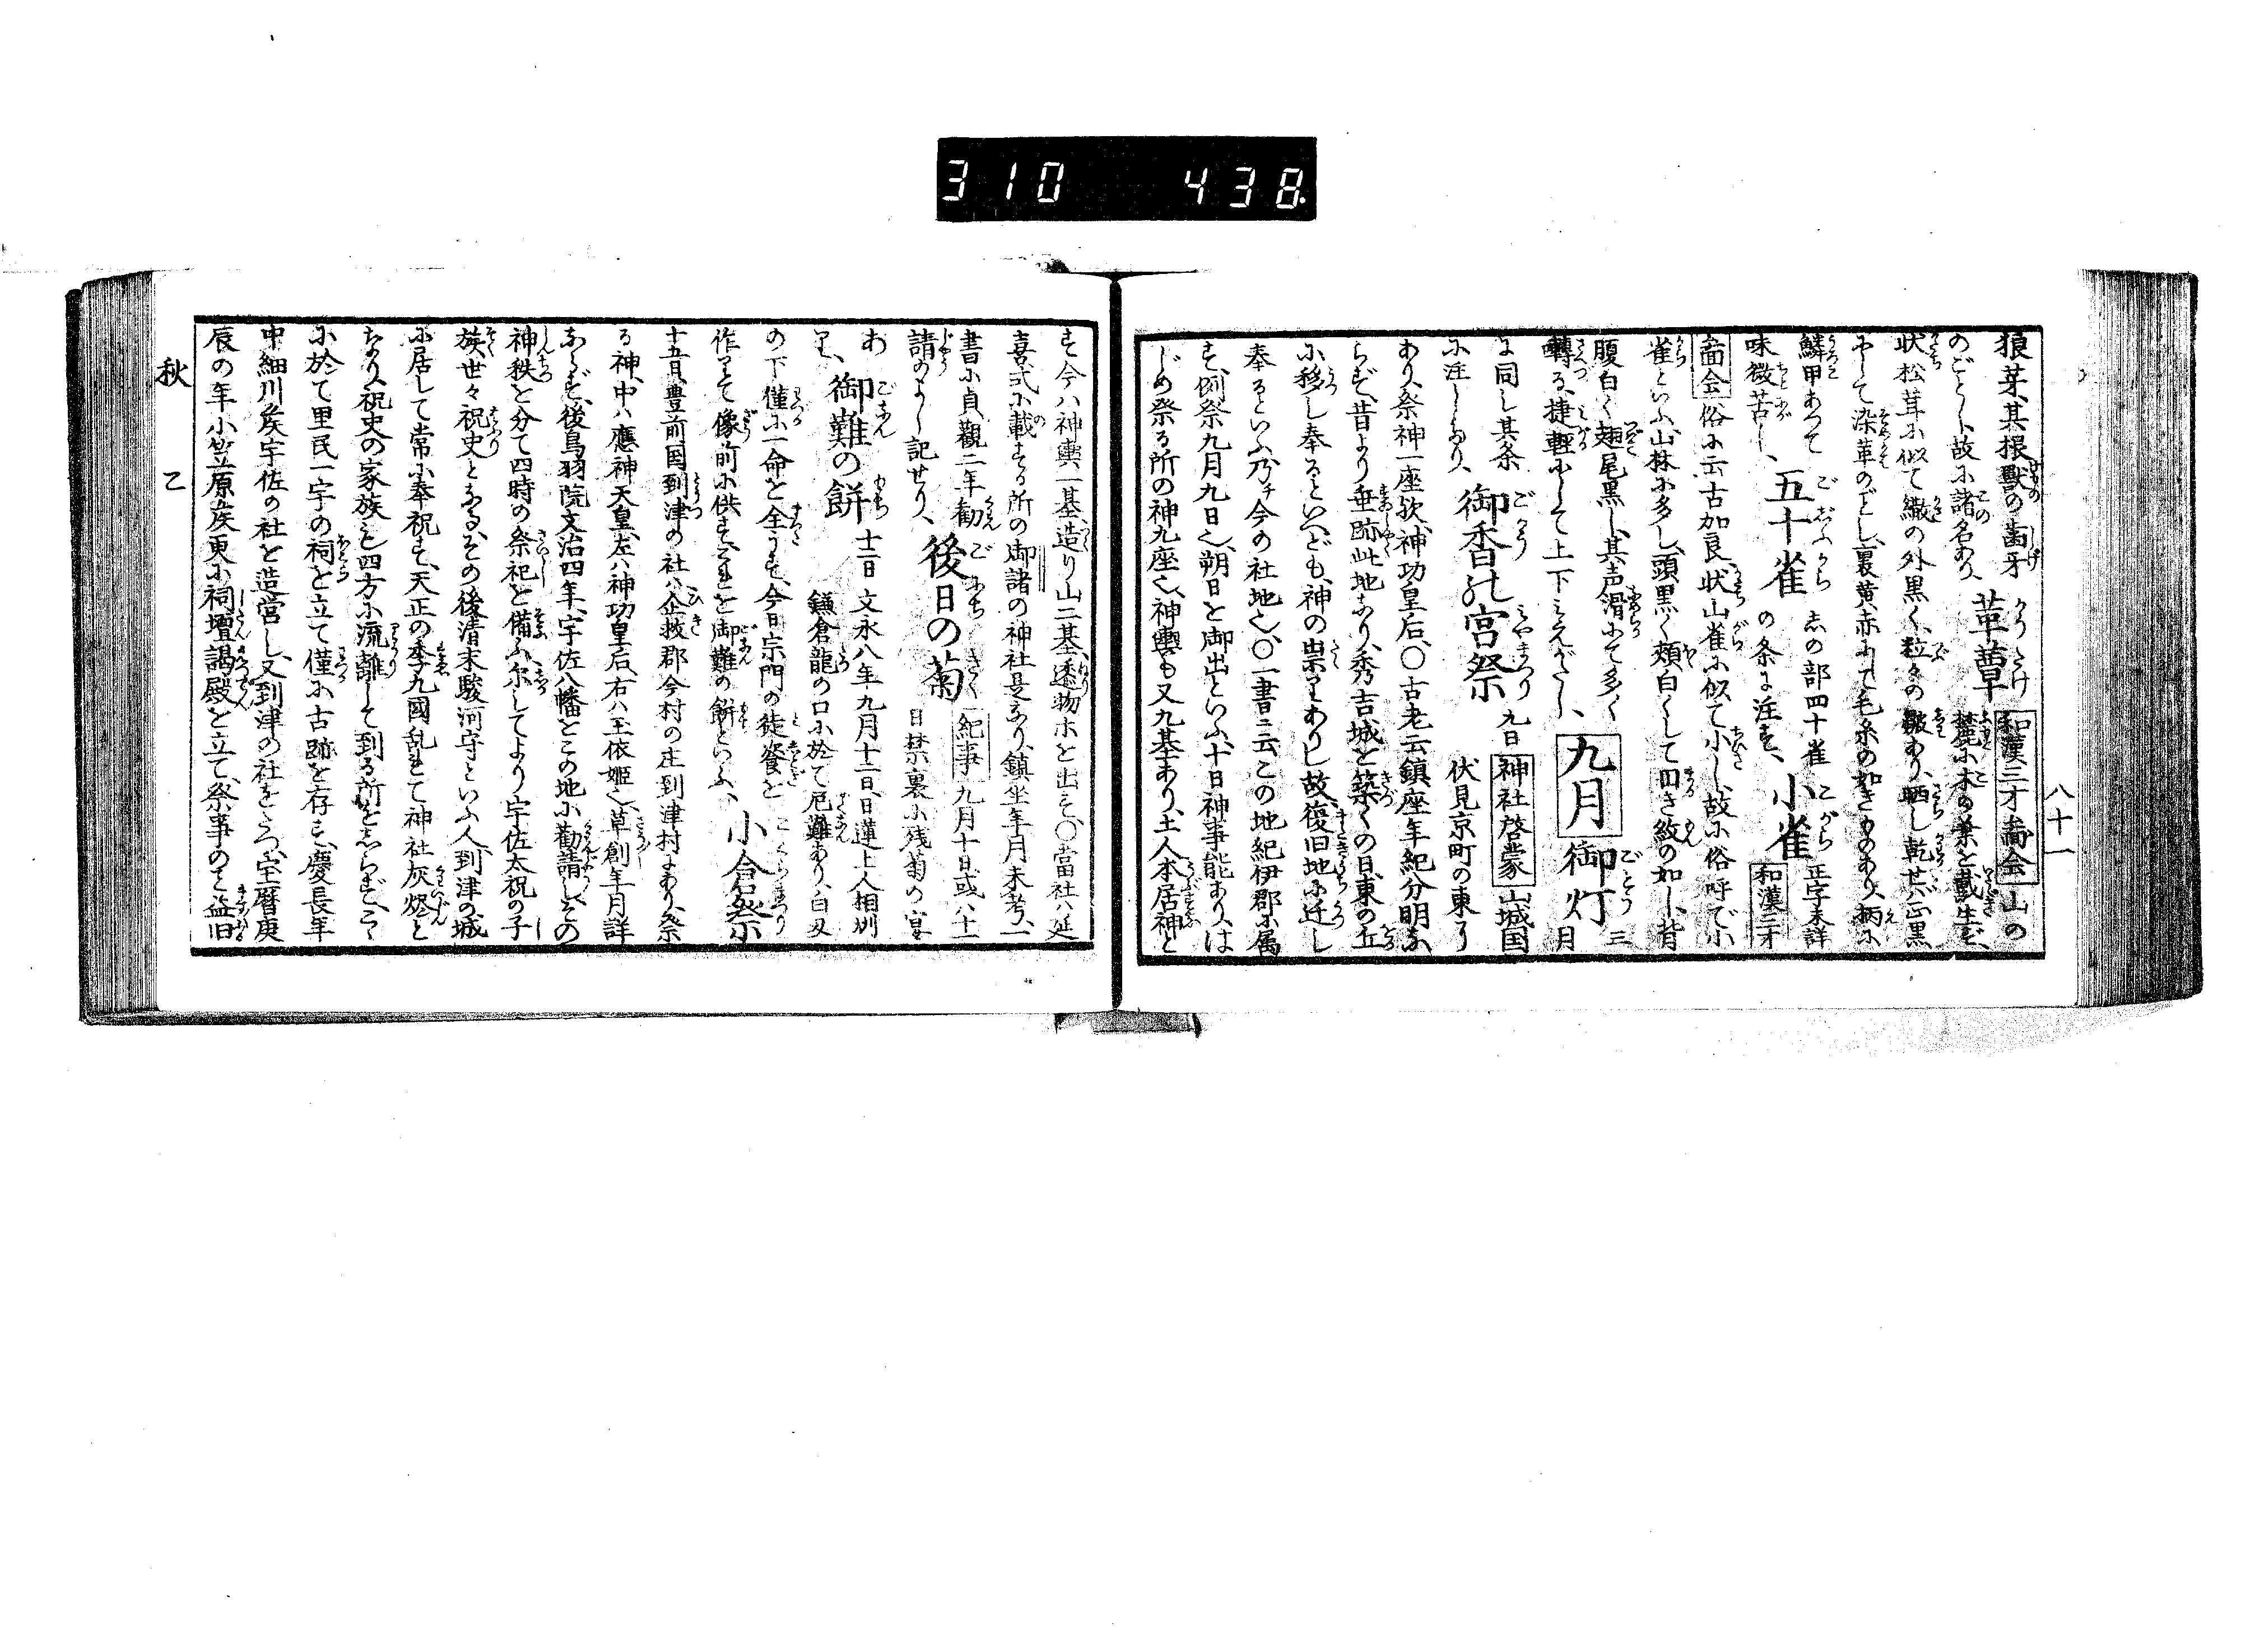 310 438.
八十一
狼芽、其根獣の歯牙
のごとし、故に諸名あり、
革蕈 和漢三才啚会 山の
麓に木の葉を戴き生ず、
状松茸に似て繖の外黒く、粒々の皺あり、晒し乾せバ正黒
にして染革のごとし、裏黄赤にて毛糸の如きものあり、柄に
鱗甲あつて
味微苦し、
五十雀 しの部四十雀
の条に注す、
小雀 正字未詳
和漢三才
啚会 俗に云古加良、状山雀に似て小し、故に俗呼で小
雀といふ、山林に多し、頭黒く頬白くして回き紋の如し、背
腹白く翅尾黒し、其声滑にて多く
囀る、捷軽にして上下さえがたし、
九月
御灯 三
月
に同し其条
に注しあり、
御香の宮祭 九日 神社啓蒙 山城国
伏見京町の東に
あり、祭神一座歟、神功皇后、〇古老云鎮座年紀分明な
らず、昔より垂跡此地なり、秀吉城を築くの日、東の丘
に移し奉るといへども、神の祟りありし故、復旧地に迁し
奉るといふ、乃チ今の社地也、〇一書ニ云この地紀伊郡に属
す、例祭九月九日也、朔日を御出といふ、十日神事能あり、は
じめ祭る所の神九座也、神輿も又九基あり、土人本居神と
す、今ハ神輿一基、造り山二基、透物ホを出す、〇當社ハ延
喜式に載する所の御諸の神社是なり、鎮坐年月未考、一
書に貞觀二年勧
請のよし記せり、
後日の菊 紀事 九月十日或ハ十一
日禁裏に残菊の宴
あ
り、
御難の餅 十二日 文永八年九月十二日、日蓮上人相刕
鎌倉龍の口に於て厄難あり、白刄
の下僅に一命を全うす、今日宗門の徒餈を
作りて像前に供す、これを御難の餅といふ、
小倉祭
十五日、豊前国到津の社ハ企救郡今村の庄到津村にあり、祭
る神、中ハ應神天皇、左ハ神功皇后、右ハ玉依姫也、草創年月詳
ならず、後鳥羽院文治四年、宇佐八幡をこの地に勧請し、その
神秩を分て四時の祭祀を備ふ、尔してより宇佐太祝の子
族、世々祝史となる、その後清末駿河守といふ人、到津の城
に居して常に奉祝す、天正の季九國乱れて神社灰燼と
なり、祝史の家族も四方に流離して到る所をしらず、こゝ
に於て里民一宇の祠を立て僅に古跡を存す、慶長年
中細川矦宇佐の社を造営し、又到津の社をたつ、宝暦庚
辰の年小笠原矦更に祠壇謁殿を立て、祭事のこと盗旧
秋 乙